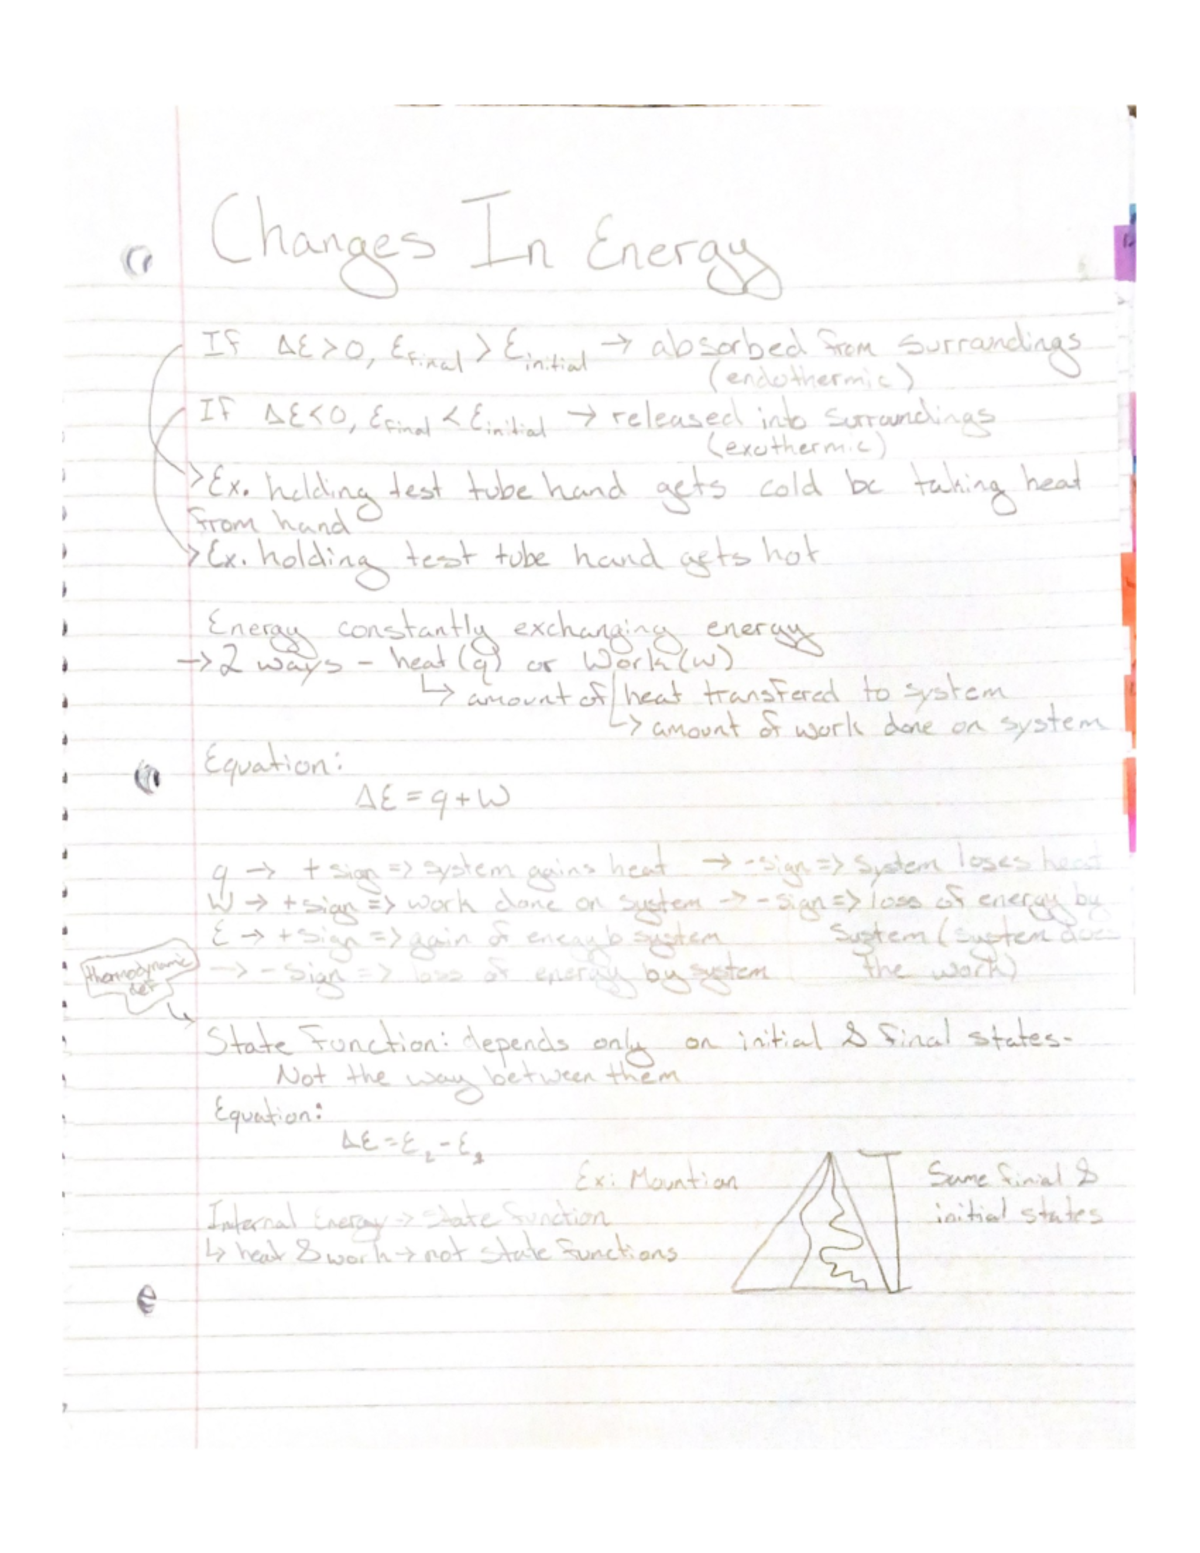 Changes In Energy
If ΔE>0, Efinal > Einitial → absorbed from surrandings
(endothermic)
If ΔE<0, Efinal < Einitial → released into surrandings
(exothermic)
>Ex. holding test tube hand gets cold bc taking heat
from hand
>Ex. holding test tube hand gets hot
Energy constantly exchanging energy
→ 2 ways - heat (q) or work (w)
↳ amount of heat transfered to system
↳ amount of work done on system
Equation:
ΔE = q + W
q → + sign => system gains heat → - sign => system loses heat
W → + sign => work done on system → - sign => loss of energy by
E → + sign => gain of energy system system (system does
→ - sign => loss of energy by system the work)
thermodynamic
def
State Function: depends only on initial & final states-
Not the way between them
Equation:
ΔE = E₂ - E₁
Ex: Mountian
Same finial &
initial states
Internal Energy → State function
↳ heat & work → not state functions